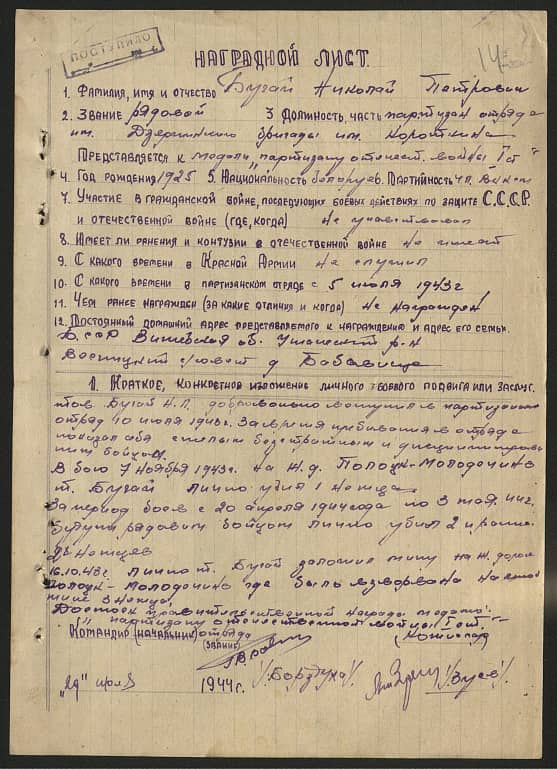 ПОСТУПИЛО
14
НАГРАДНОЙ ЛИСТ.
1. Фамилия, имя и отчество Бугай Николай Петрович
2. Звание рядовой 3 Должность, часть партизан отряда
им. Дзержинского бригады им. Короткина
Представляется к медали "партизану отечест. войны I ст"
4. Год рождения 1925 5. Национальность белорус 6. Партийность чл. ВЛКСМ
7. Участие в гражданской войне, последующих боевых действиях по защите С.С.С.Р.
и отечественной войне (где, когда) Не участвовал
8. Имеет ли ранения и контузии в отечественной войне не имеет
9. С какого времени в Красной Армии не служил
10. С какого времени в партизанском отряде с 5 июля 1943 г
11. Чем ранее награжден (за какие отличия и когда) не награжден
12. Постоянный домашний адрес представляемого к награждению и адрес его семьи.
Б.ССР Витебская об. Ушачский р-н
с/совет д
1. Краткое, конкретное изложение личного боевого подвига или заслуг.
тов Бугай Н.П. добровольно вступил в партизанский
отряд 10 июля 1943 г. За время пребывания в отряде
показал себя смелым бесстрашным и
бойцом.
В бою 7 ноября 1943 г. на ж.д. Полоцк-Молодечино
т. Бугай лично убил 1 немца.
За период боев с 20 апреля 1944 года по 3 мая
Будучи рядовым бойцом лично убил 2 и ранил
немцев
16.10.43 г. лично т. Бугай заложил мину на ж. дороге
Полоцк-Молодечино где была взорвана на
мине
Достоин правительственной награды медали:
"партизану отечественной войны I ст."
Командир (начальник) отряда Комиссар
(звание)
/Бордуха/. /Зуев/.
"29" июля 1944 г.